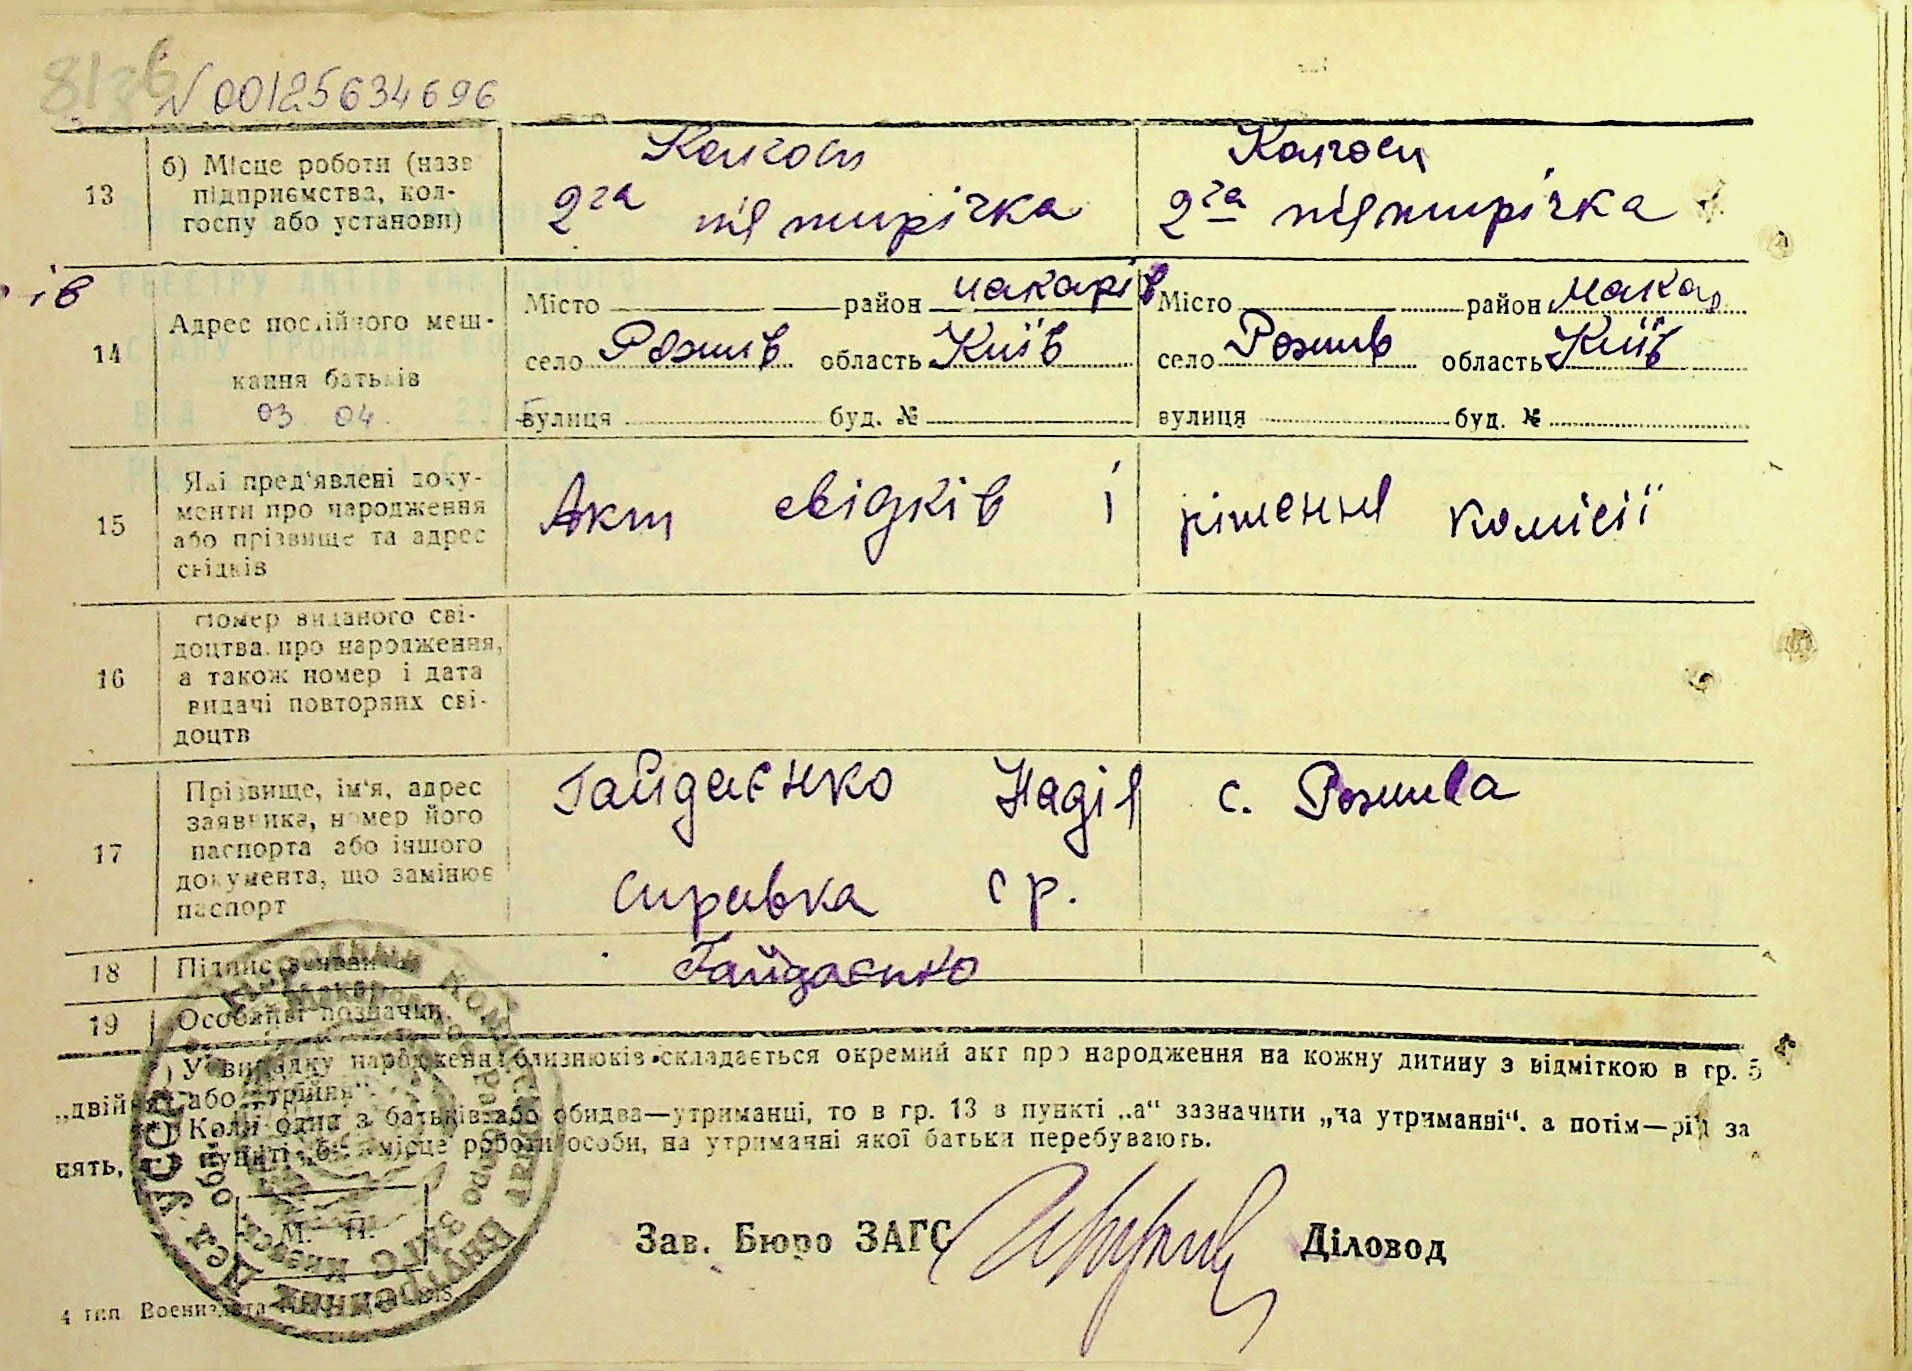 N 00125634696
13
б) Місце роботи (назв
підприємства, кол-
госпу або установи)
Колгосп
2га пятирічка
Колгосп
2га пятирічка
ів
14
Адрес постійного меш-
кання батьків
03 04.
РЕЄСТРУ АКТІВ
Місто район макарів
село Рожів область Київ
вулиця буд. №
Місто район Макар
село Рожів область Київ
вулиця буд. №
15
Які пред'явлені доку-
менти про народження
або прізвище та адрес
свідків
Акт свідків і рішення комісії
16
Номер виданого сві-
доцтва про народження,
а також номер і дата
видачі повторних сві-
доцтв
17
Прізвище, ім'я, адрес
заявника, номер його
паспорта або іншого
документа, що замінює
паспорт
Гайдаєнко Надія с. Рожива
справка с р.
18
Підпис заявника
Гайдаєнко
19
Особливі позначки.
) У випадку народження близнюків складається окремий акт про народження на кожну дитину з відміткою в гр. 5
„двійня“ або „трійня“.
Коли одна з батьків або обидва—утриманці, то в гр. 13 в пункті „а“ зазначити „на утриманні“, а потім—рід за
нять, пункті „б“ місце роботи особи, на утриманні якої батьки перебувають.
М. П.
Зав. Бюро ЗАГС
Діловод
4 тип Воениздата
УССР
Внутренних Дел
ЗАГС